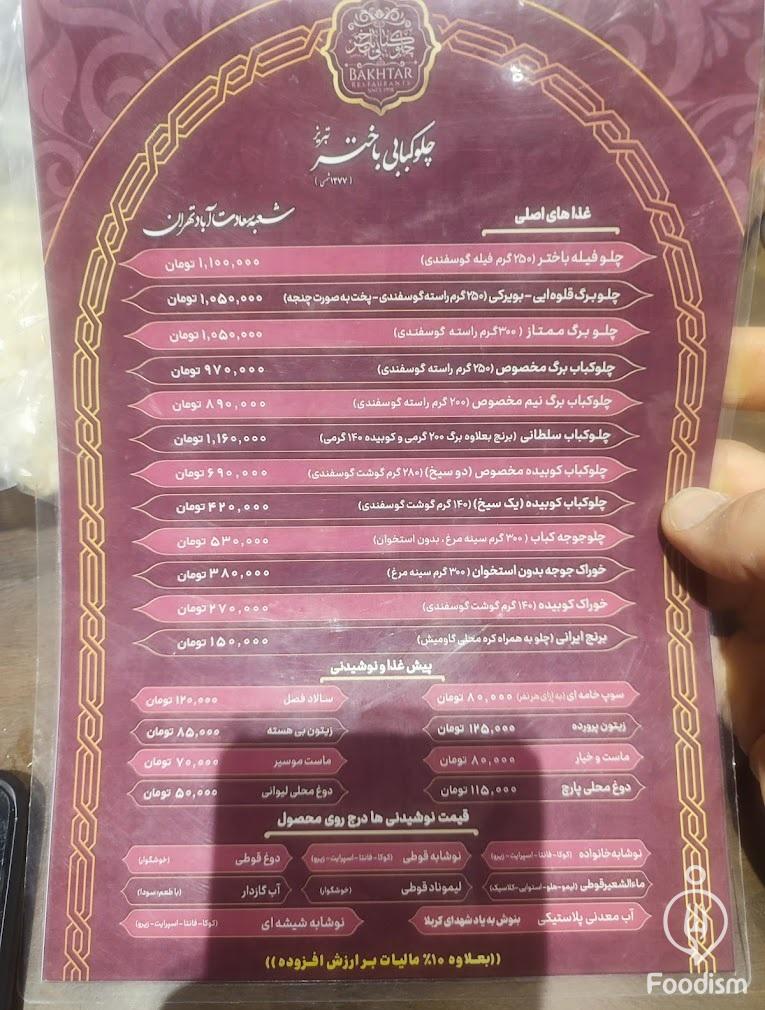 چلوکبابی باختر
BAKHTAR
RESTAURANTS
SINCE 1998
چلوکبابی باختر تبریز
(۱۳۷۷ شمسی)
شعبه سعادت آباد تهران
غذا های اصلی
چلو فیله باختر (۲۵۰ گرم فیله گوسفندی) ۱,۱۰۰,۰۰۰ تومان
چلوبرگ قلوه ایی - بویرکی (۲۵۰ گرم راسته گوسفندی - پخت به صورت چنجه) ۱,۰۵۰,۰۰۰ تومان
چلو برگ ممتاز (۳۰۰ گرم راسته گوسفندی) ۱,۰۵۰,۰۰۰ تومان
چلوکباب برگ مخصوص (۲۵۰ گرم راسته گوسفندی) ۹۷۰,۰۰۰ تومان
چلوکباب برگ نیم مخصوص (۲۰۰ گرم راسته گوسفندی) ۸۹۰,۰۰۰ تومان
چلوکباب سلطانی (برنج بعلاوه برگ ۲۰۰ گرمی و کوبیده ۱۴۰ گرمی) ۱,۱۶۰,۰۰۰ تومان
چلوکباب کوبیده مخصوص (دو سیخ) (۲۸۰ گرم گوشت گوسفندی) ۶۹۰,۰۰۰ تومان
چلوکباب کوبیده (یک سیخ) (۱۴۰ گرم گوشت گوسفندی) ۴۲۰,۰۰۰ تومان
چلوجوجه کباب (۳۰۰ گرم سینه مرغ، بدون استخوان) ۵۳۰,۰۰۰ تومان
خوراک جوجه بدون استخوان (۳۰۰ گرم سینه مرغ) ۳۸۰,۰۰۰ تومان
خوراک کوبیده (۱۴۰ گرم گوشت گوسفندی) ۲۷۰,۰۰۰ تومان
برنج ایرانی (چلو به همراه کره محلی گاومیش) ۱۵۰,۰۰۰ تومان
پیش غذا و نوشیدنی
سوپ خامه ای (به ازای هر نفر) ۸۰,۰۰۰ تومان سالاد فصل ۱۲۰,۰۰۰ تومان
زیتون پرورده ۱۲۵,۰۰۰ تومان زیتون بی هسته ۸۵,۰۰۰ تومان
ماست و خیار ۸۰,۰۰۰ تومان ماست موسیر ۷۰,۰۰۰ تومان
دوغ محلی پارچ ۱۱۵,۰۰۰ تومان دوغ محلی لیوانی ۵۰,۰۰۰ تومان
قیمت نوشیدنی ها درج روی محصول
نوشابه خانواده (کوکا - فانتا - اسپرایت - زیرو) نوشابه قوطی (کوکا - فانتا - اسپرایت - زیرو) دوغ قوطی (خوشگوار)
ماءالشعیر قوطی (لیمو - هلو - استوایی - کلاسیک) لیموناد قوطی (خوشگوار) آب گازدار (با طعم: سودا)
آب معدنی پلاستیکی بنوش به یاد شهدای کربلا نوشابه شیشه ای (کوکا - فانتا - اسپرایت - زیرو)
((بعلاوه ۱۰٪ مالیات بر ارزش افزوده))
Foodism